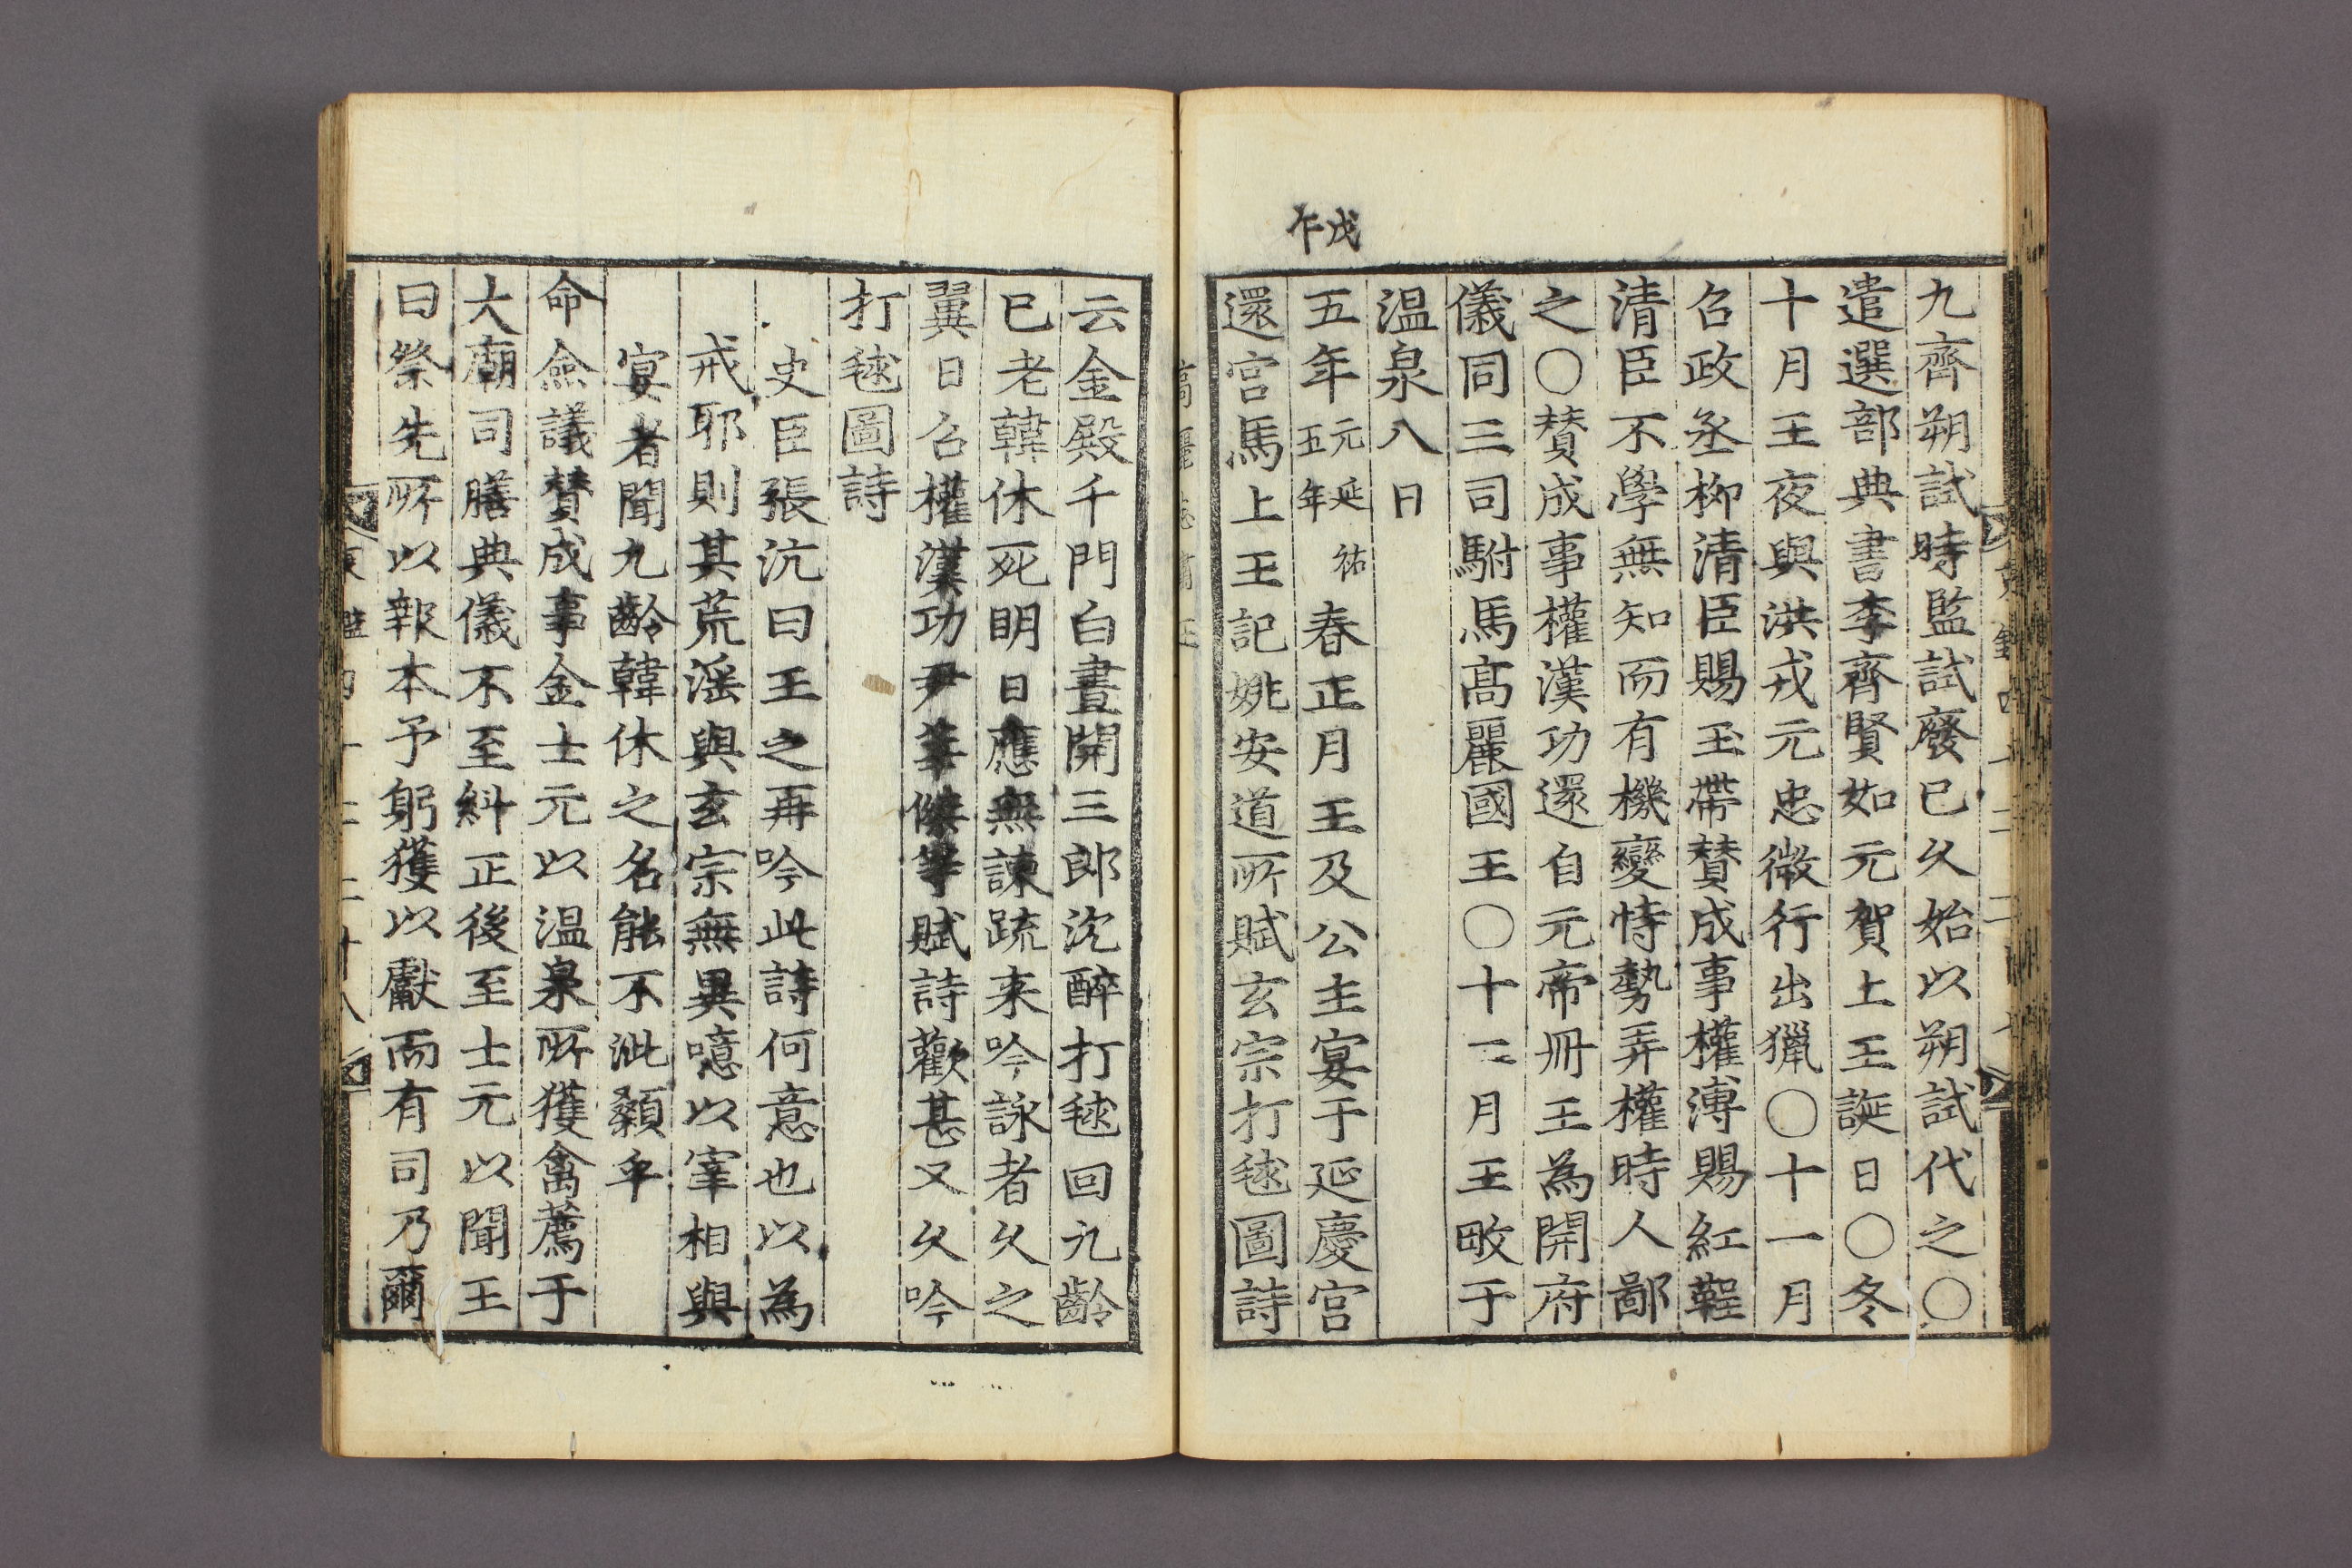 九齊朔試時監試廢已久始以朔試代之〇
遣選部典書李齊賢如元賀上王誕日〇冬
十月王夜與洪戎元忠微行出獵〇十一月
召政丞柳清臣賜玉帶賛成事權溥賜紅鞓
清臣不學無知而有機變恃勢弄權時人鄙
之〇賛成事權漢功還自元帝冊王為開府
儀同三司駙馬高麗國王〇十二月王畋于
温泉八日
戊午
五年元延祐五年春正月王及公主宴于延慶宮
還宮馬上王記姚安道所賦玄宗打毬圖詩
云金殿千門白晝開三郎沈醉打毬回九齡
已老韓休死明日應無諫䟽来吟詠者久之
翼日召權漢功尹莘傑等賦詩歡甚又久吟
打毬圖詩
史臣張沆曰王之再吟此詩何意也以為
戒耶則其荒淫與玄宗無異噫以宰相與
宴者聞九齡韓休之名能不泚顙乎
命僉議賛成事金士元以温泉所獲禽薦于
大廟司膳典儀不至糾正後至士元以聞王
曰祭先所以報本予躬獲以獻而有司乃爾